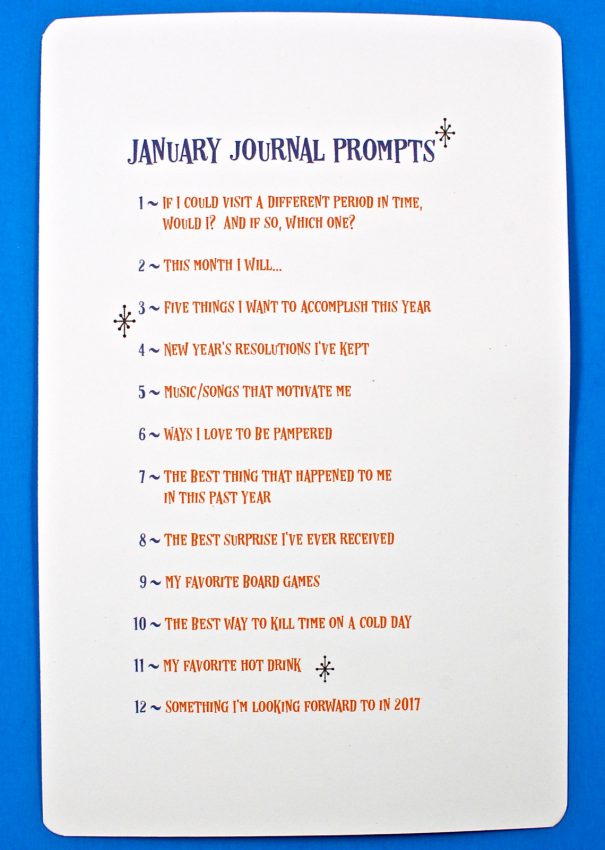 JANUARY JOURNAL PROMPTS
1 ~ IF I COULD VISIT A DIFFERENT PERIOD IN TIME,
WOULD I? AND IF SO, WHICH ONE?
2 ~ THIS MONTH I WILL...
3 ~ FIVE THINGS I WANT TO ACCOMPLISH THIS YEAR
4 ~ NEW YEAR'S RESOLUTIONS I'VE KEPT
5 ~ MUSIC/SONGS THAT MOTIVATE ME
6 ~ WAYS I LOVE TO BE PAMPERED
7 ~ THE BEST THING THAT HAPPENED TO ME
IN THIS PAST YEAR
8 ~ THE BEST SURPRISE I'VE EVER RECEIVED
9 ~ MY FAVORITE BOARD GAMES
10 ~ THE BEST WAY TO KILL TIME ON A COLD DAY
11 ~ MY FAVORITE HOT DRINK
12 ~ SOMETHING I'M LOOKING FORWARD TO IN 2017